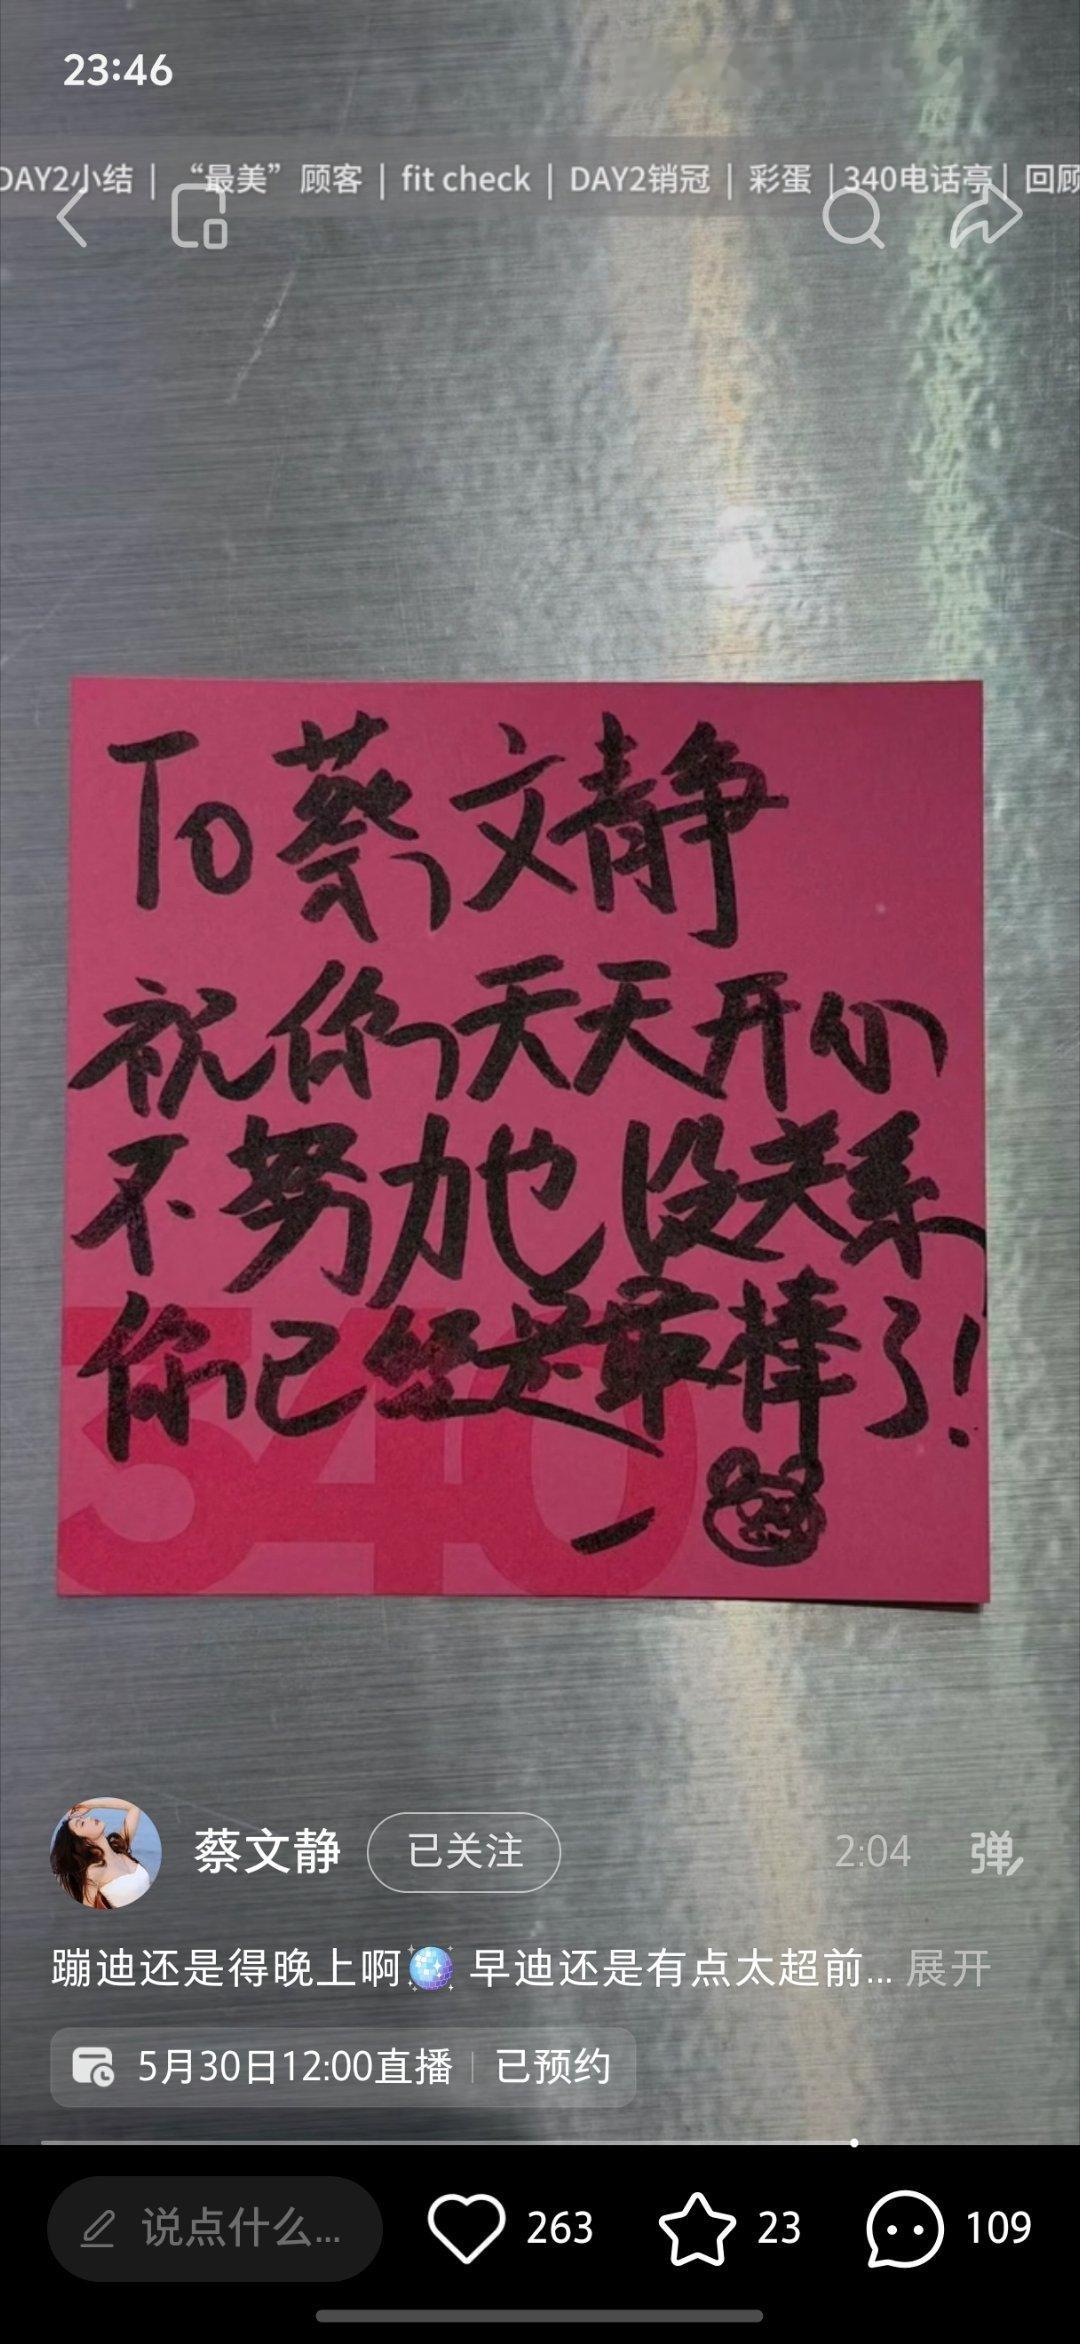 23:46
DAY2小结 | “最美”顾客 | fit check | DAY2销冠 | 彩蛋 | 340电话亭 | 回顾
To 蔡文静
祝你天天开心
不努力也没关系
你已经是最棒了!
340
蔡文静 已关注 2:04 弹
蹦迪还是得晚上啊 早迪还是有点太超前... 展开
5月30日12:00直播 | 已预约
说点什么... 263 23 109